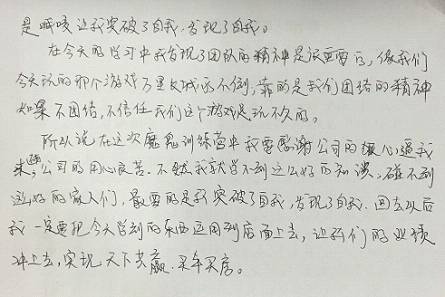 是喊唛让我突破了自我,发现了自我。
在今天的学习中我发现了团队的精神是很重要的,像我们
今天玩的那个游戏万里长城永不倒,靠的是我们团结的精神
如果不团结,不信任我们这个游戏是玩不久的。
所以说在这次魔鬼训练营中我要感谢公司的狠心逼我
来,公司的用心良苦.不然我就学不到这么好的知识,碰不到
这么好的家人们,最要的是我突破了自我,发现了自我.回去以后
我一定要把今天学到的东西运用到店面上去,让我们的业绩
冲上去,实现天下共赢.买车买房。